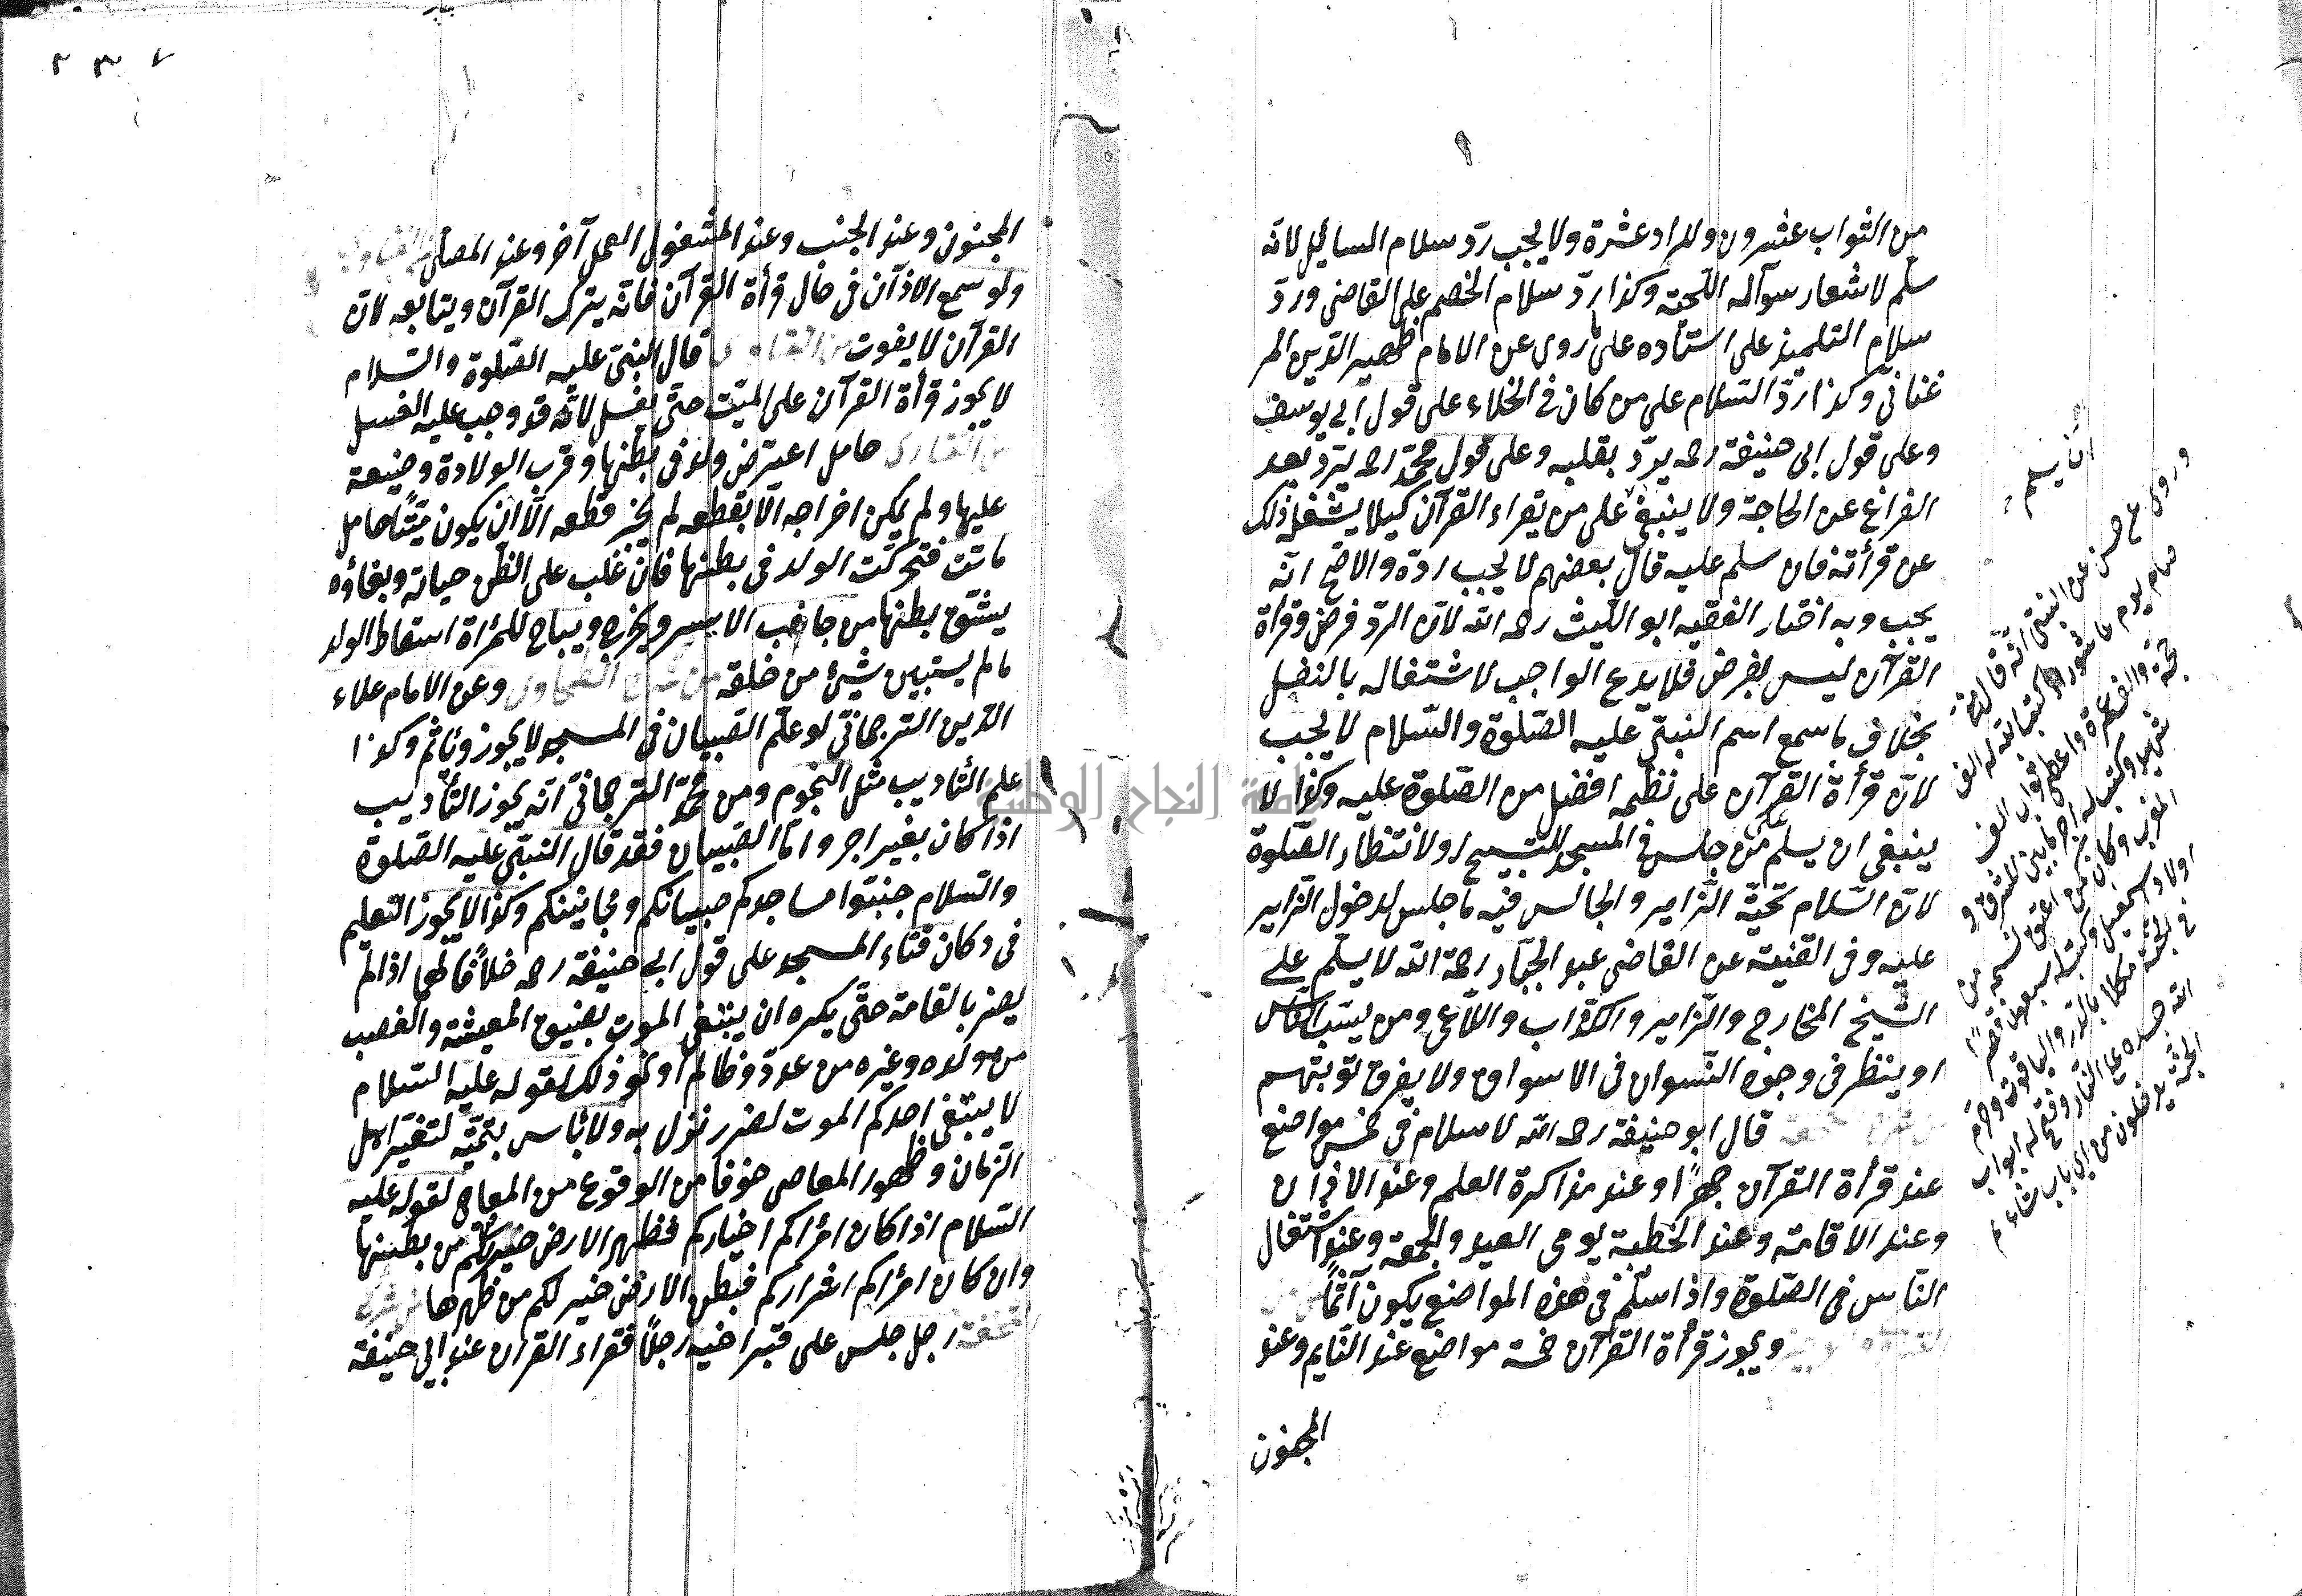 من الثواب عشرون وللراد عشرة ولا يجب ردّ سلام السائيل لانه
سلّم لاشعار سوآله اللجته وكذا ردّ سلام الخصم على القاضى وردّ
سلام التلميذ على استأده على ما روى عن الامام ظهير الدين المر
غنانى وكذا ردّ السّلام على من كان فى الخلاء على قول ابى يوسف
وعلى قول ابى حنيفة رحه يردّ بقلبه وعلى قول محمّد رحه يردّ بعد
الفراغ عن الحاجة ولا ينبغى على من يقراء القرآن كيلا يشغله ذلك
عن قرأته فان سلم عليه قال بعضهم لا يجب ردة والاصّح انه
يجب وبه اختار الفقيه ابو اللّيث رحه الله لانّ الردّ فرض وقرأة
القرآن ليس بفرض فلا يدع الواجب لاشتغاله بالنفل
بخلاف ما سمع اسم النبىّ عليه الصّلوة والسّلام لا يجب
لانّ قرأة القرآن على نظمه افضل من الصّلوة عليه وكذا لا
ينبغى ان يسلم على من جلس فى المسجد للتسبيح او لانتظار الصّلوة
لانّ السّلام تحيّة الزّاير والجالس فيه ما جلس لدخول الزاير
عليه وفى القنية عن القاضى عبد الجبّار رحمة الله لا يسلّم على
الشّيخ المخارج والزاير والكذّاب واللّاغى ومن يسبّ النّاس
او ينظر فى وجوه النّسوان فى الاسواق ولا يعرف توبتهم
قال ابو حنيفة رحه الله لا سلام فى خمس مواضع
عند قرأة القرآن جهرًا وعند مذاكرة العلم وعند الاذان
وعند الاقامة وعند الخطبة يومى العيد والجمعة وعند اشتغال
النّاس فى الصّلوة واذا سلّم فى هذه المواضع يكون آثمًا
ويجوز قرأة القرآن خمسة مواضع عند النّايم وعند
المجنون
ان يسلم
وروى عن حسن عن النبىّ انّه قال من
صام يوم عاشورا كتب الله له الف
حجّة والف عمرة واعطى ثواب الف
شهيد وكتب له اجر ما بين المشرق و
المغرب وكان كمن اعتق نسمة من
اولاد اسمعيل وكتب له سبعون قصرًا
فى الجنّة مكللا بالدر والياقوت وحرّم
الله جسده على النّار وفتح له ابواب
الجنّة يدخلون من اى باب شاء م
٢٣٧
المجنون وعند الجنب وعند المشغول العمل آخر وعند المصلّى
ولو سمع الاذآن فى حال قرأة القرآن فانّه يترك القرآن ويتابعه لانّ
القرآن لا يفوت من الفتاوى قال النبىّ عليه الصّلوة والسّلام
لا يجوز قرأة القرآن على الميّت حتّى يغسل لانّه قد وجب عليه الغسل
من الفتاوى حامل اعترض ولد فى بطنها وقرب الولادة وضيعة
عليها ولم يمكن اخراجه الّا بقطعه لم يجز قطعه الّا ان يكون ميّتًا حامل
ماتت فتحرّكت الولد فى بطنها فان غلب على الظّن حياته وبقاؤه
يشّق بطنها من جانب الايسر ويخرج ويباح للمرأة اسقاط الولد
ما لم يستبين شئ من خلقه من شرح الطحاوى وعن الامام علاء
الدّين الترجمانى لو علّم الصّبيان فى المسجد لا يجوز ويأثم وكذا
علم التأديب مثل النجوم ومن محمّد الترجمانى انّه يجوز التأديب
اذا كان بغير اجر وامّا الصّبيان فقد قال النبىّ عليه الصّلوة
والسّلام جنبّوا مساجدكم صبيانكم ومجانينكم وكذا لا يجوز التعليم
فى دكان فناء المسجد على قول ابى حنيفة رحه خلافًا لهما اذا لم
يضر بالقامة حتّى يكره ان يبتغى الموت بضيق المعيشة والغصب
من مولده وغيره من عدوّ وظالم او نحو ذلك لقوله عليه السّلام
لا يبتغى احدكم الموت لضرر نزل به ولا بأس بتمنّيه لتغيّر اهل
الزمان وظهور المعاصى خوفا من الوقوع من المعاصى لقوله عليه
السّلام اذا كان امرأكم اخياركم فظهر الارض خير لكم من بطنها
وان كان امرأكم اشراركم فبطن الارض خير لكم من ظهرها
رجل جلس على قبر اخيه رجلًا فقراء القرآن عند ابى حنيفة
جامعة النجاح الوطنية